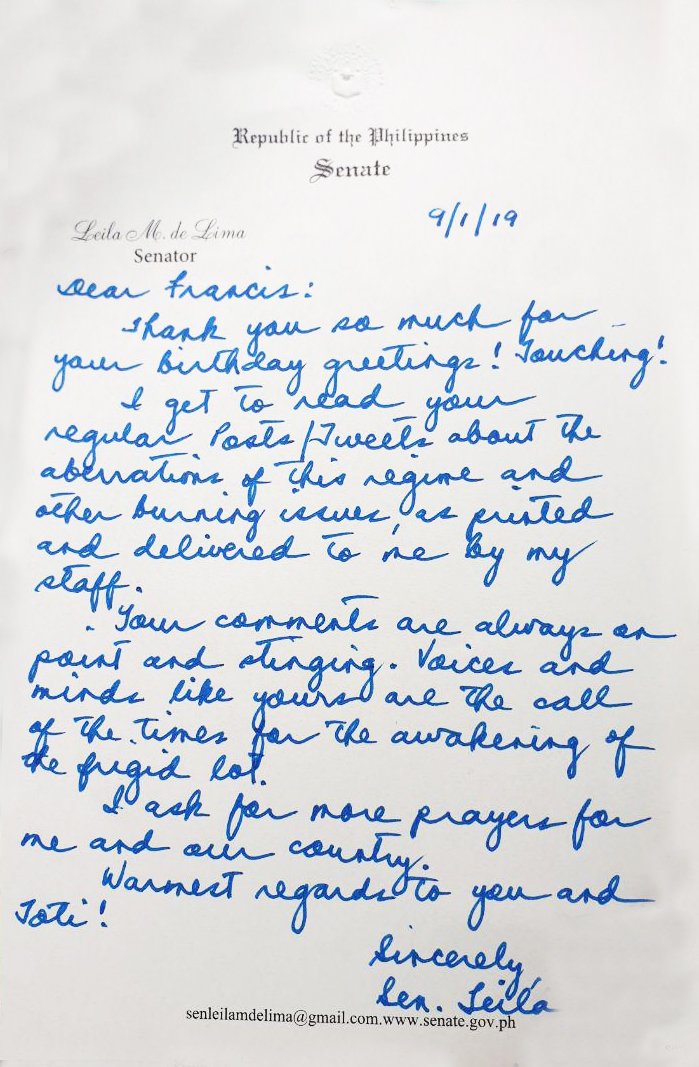 Republic of the Philippines
Senate
9/1/19
Leila M. de Lima
Senator
Dear Francis:
Thank you so much for
your birthday greetings! Touching!
I get to read your
regular Posts/Tweets about the
aberrations of this regime and
other burning issues, as printed
and delivered to me by my
staff.
Your comments are always on
point and stinging. Voices and
minds like yours are the call
of the times for the awakening of
the frigid lot.
I ask for more prayers for
me and our country.
Warmest regards to you and
Toti!
Sincerely,
Sen. Leila
senleilamdelima@gmail.com.www.senate.gov.ph